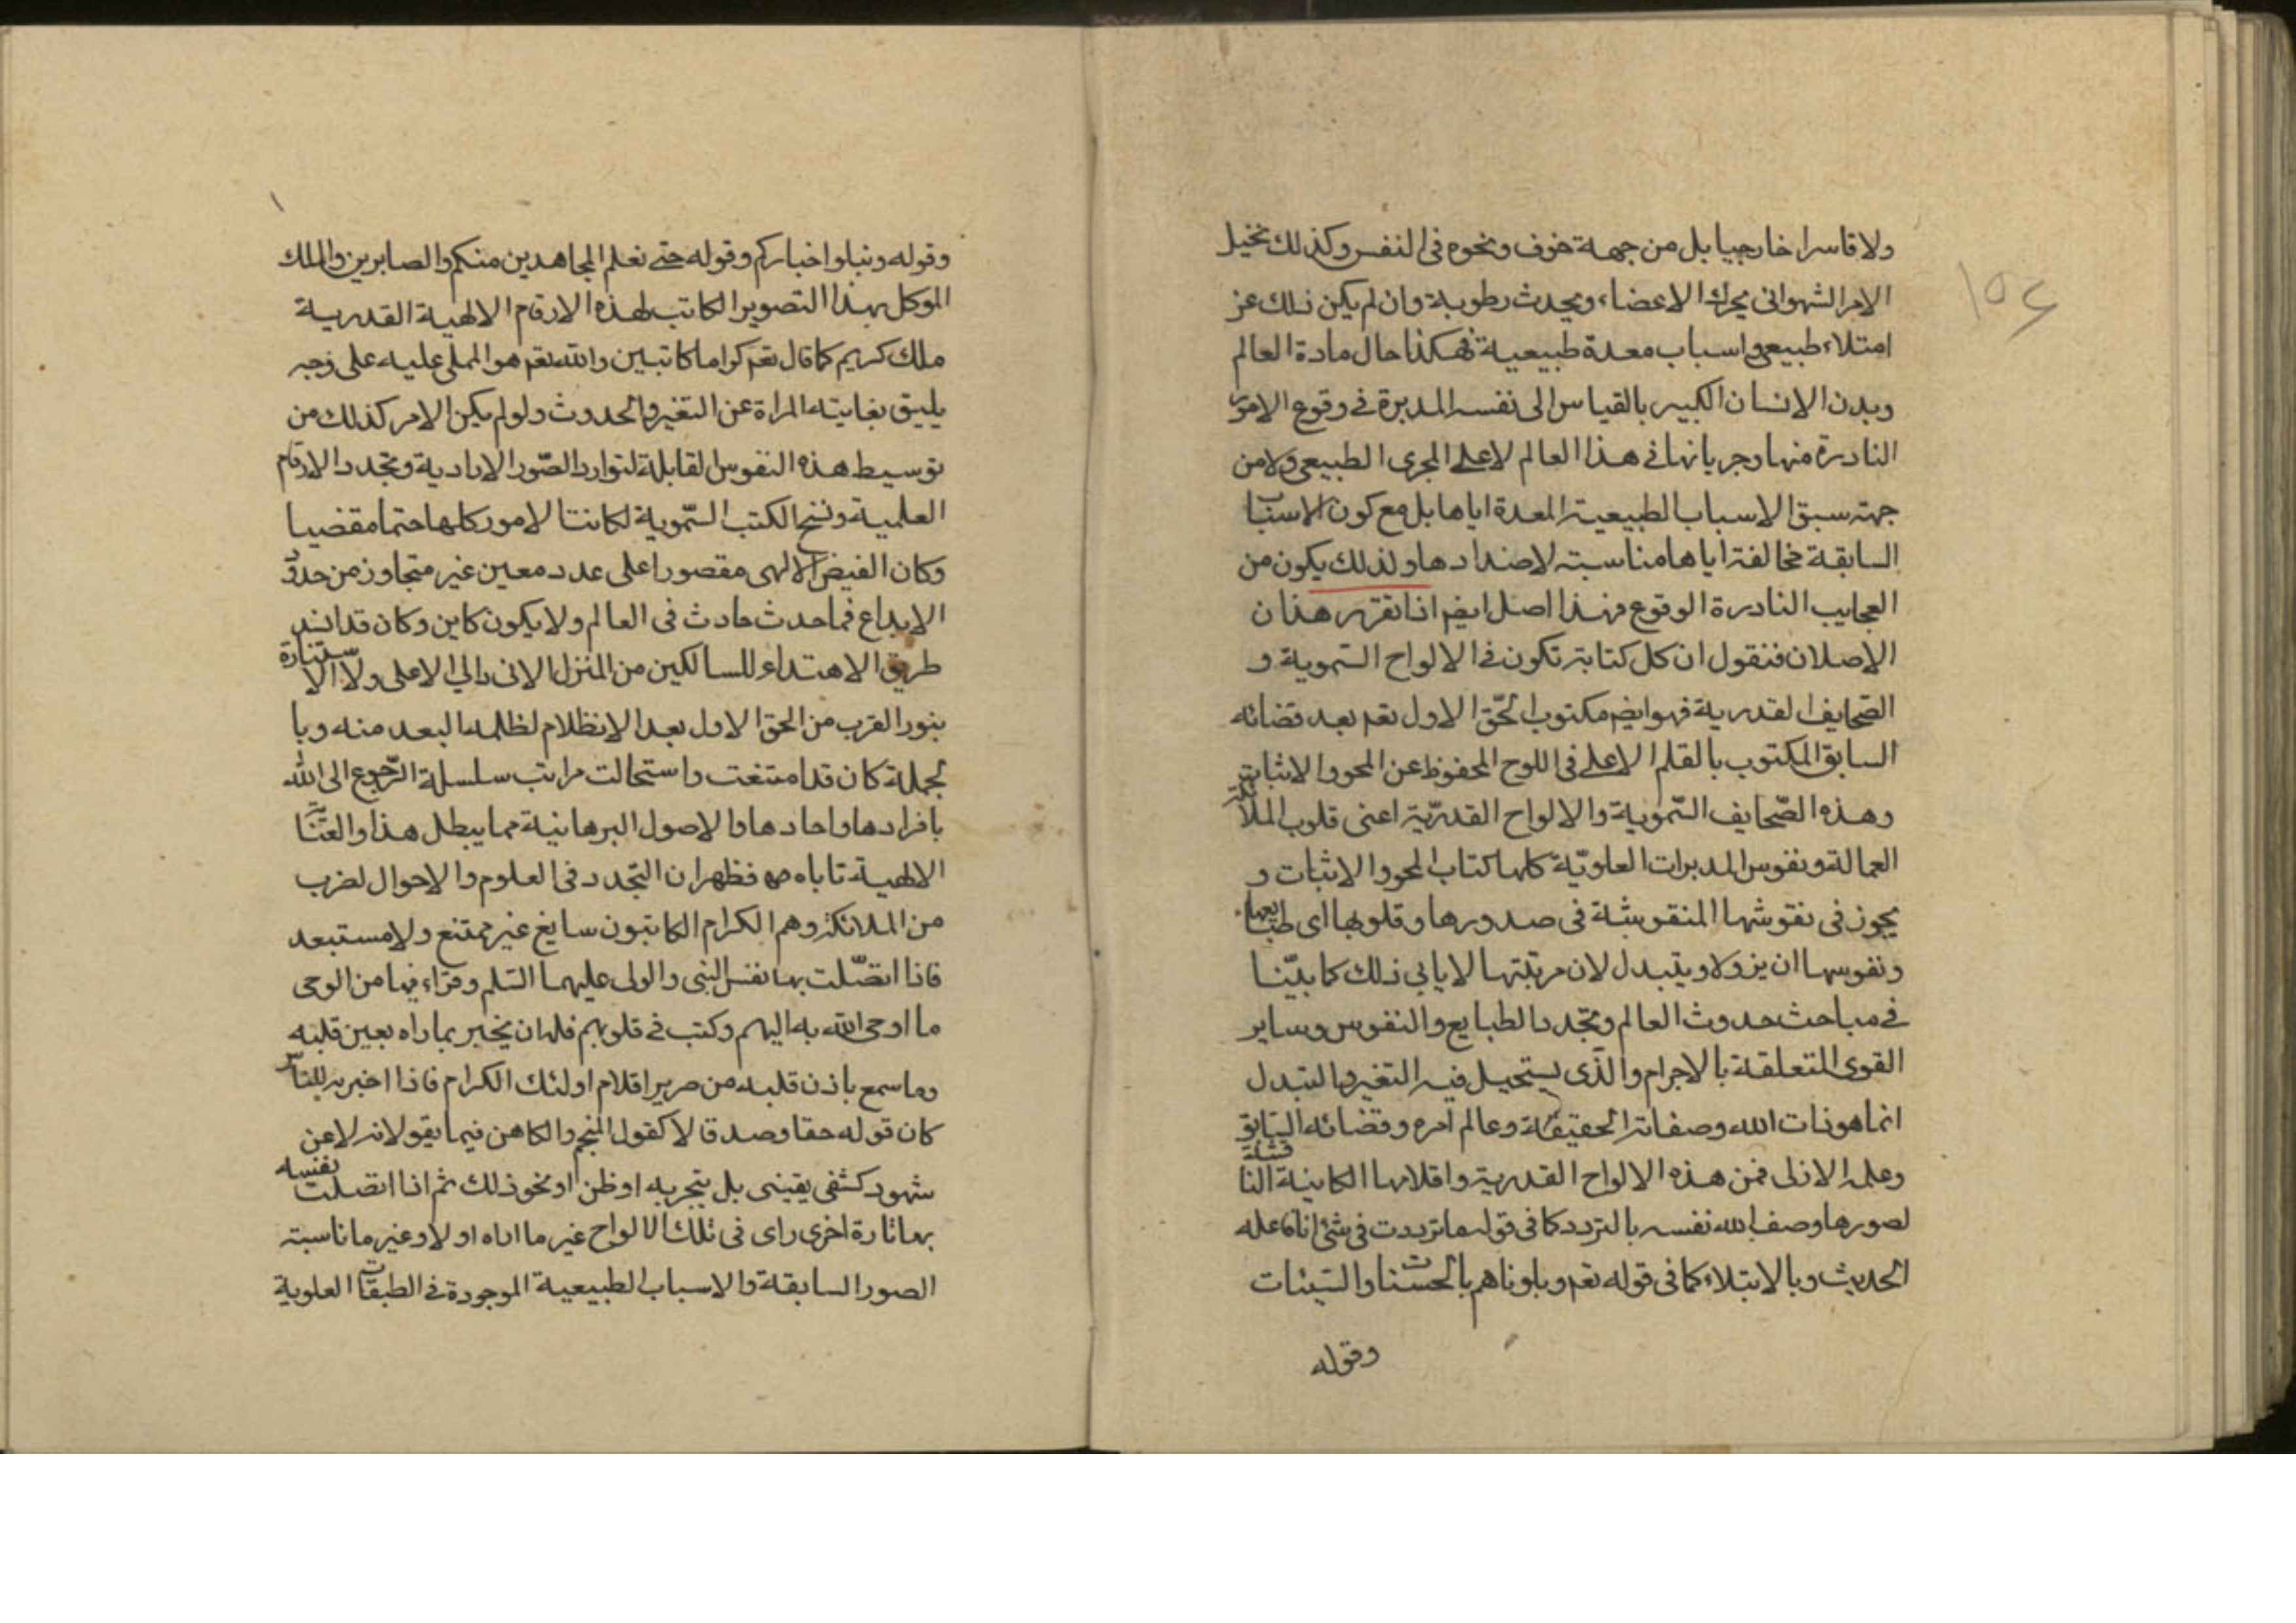 ولا قاسرا خارجيا بل من جهة خوف ونحوه في النفس وكذلك تخيل
الامر الشهواني يحرك الاعضاء ويحدث رطوبة وان لم يكن ذلك عن
امتلاء طبيعي واسباب معدة طبيعية فهكذا حال مادة العالم
وبدن الانسان الكبير بالقياس الى نفسه المدبرة في وقوع الامور
النادرة منها وجريانها في هذا العالم لا على المجرى الطبيعي ولا من
جهة سبق الاسباب الطبيعية المعدة اياها بل مع كون الاسباب
السابقة مخالفة اياها مناسبة لاضدادها ولذلك يكون من
العجايب النادرة الوقوع فهذا اصل ايضا اذا تقرر هذان
الاصلان فنقول ان كل كتابة تكون في الالواح السموية و
الصحايف القدرية فهو ايض مكتوب الحق الاول تعم بعد قضائه
السابق المكتوب بالقلم الاعلى في اللوح المحفوظ عن المحو والاثبات
وهذه الصحايف السموية والالواح القدرية اعنى قلوب الملائكة
العمالة ونفوس المدبرات العلوية كلها كتاب المحو والاثبات و
يجوز في نقوشها المنقوشة في صدورها وقلوبها اى طبايعها
ونفوسها ان يزول ويتبدل لان مرتبتها لا يابي ذلك كما بينا
في مباحث حدوث العالم وتجدد الطبايع والنفوس وساير
القوى المتعلقة بالاجرام والذى يستحيل فيه التغير والتبدل
انما هو ذات الله وصفاته الحقيقة وعالم امره وقضائه السابق
وعلمه الازلى فمن هذه الالواح القدرية واقلامها الكاتبة الناقشة
لصورها وصف الله نفسه بالتردد كما في قوله ما ترددت في شئ انا فاعله
الحديث وبالابتلاء كما في قوله تعم وبلوناهم بالحسنات والسيئات
وقوله
وقوله ونبلو اخباركم وقوله حتى نعلم المجاهدين منكم والصابرين والملك
الموكل بهذا التصوير الكاتب لهذه الارقام الالهية القدرية
ملك كريم كما قال تعم كراما كاتبين والله تعم هو المملى عليه على وجه
يليق بغايته المراة عن التغير والحدوث ولو لم يكن الامر كذلك من
توسيط هذه النفوس القابلة لتوارد الصور الارادية وتجدد الارقام
العلمية ونسخ الكتب السموية لكانت الامور كلها حتما مقضيا
وكان الفيض الالهى مقصورا على عدد معين غير متجاوز من حدود
الابداع فما حدث حادث في العالم ولا يكون كاين وكان قد انسد
طريق الاهتداء للسالكين من المنزل الادنى الى الاعلى ولا الاستنارة
بنور القرب من الحق الاول بعد الانظلام لظلمة البعد منه وبا
لجملة كان قد امتنعت واستحالت مراتب سلسلة الرجوع الى الله
بافرادها واحادها والاصول البرهانية مما يبطل هذا والعناية
الالهية تاباه فظهر ان التجدد في العلوم والاحوال لضرب
من الملائكة وهم الكرام الكاتبون سايغ غير ممتنع ولا مستبعد
فاذا اتصلت بها نفس النبى والولى عليهما السلم وقراء فيها من الوحى
ما اوحى الله به اليهم وكتب في قلوبهم فله ان يخبر بما راه بعين قلبه
وما سمع باذن قلبه من صرير اقلام اولئك الكرام فاذا اخبر به للناس
كان قوله حقا وصدقا لا كقول المنجم والكاهن فيما يقولانه لا عن
شهود كشفى يقينى بل بتجربه او ظن او نحو ذلك ثم اذا اتصلت نفسه
بها تارة اخرى راى في تلك الالواح غير ما اراه اولا وغير ما ناسبته
الصور السابقة والاسباب الطبيعية الموجودة في الطبقات العلوية